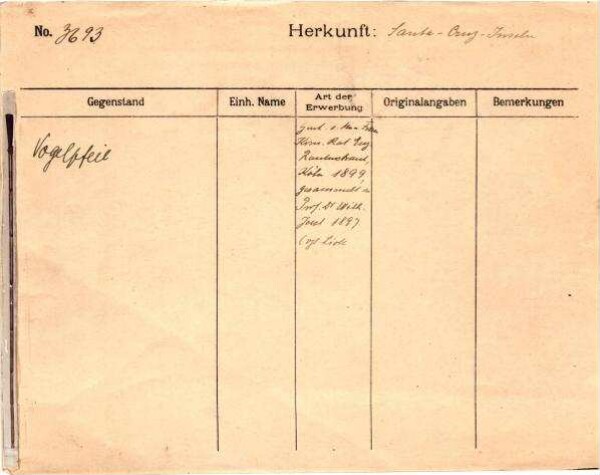 No. 3693
Herkunft: Santa-Cruz-Inseln
Gegenstand
Einh. Name
Art der Erwerbung
Originalangaben
Bemerkungen
Vogelpfeil
Rat Eug
Rautenstrauch,
Köln 1899,
gesammelt v.
Prof. Dr Wilh.
Joest 1897